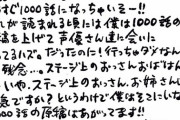 すぐ1000話になっちゃいそー!!
が読まれる頃には僕は1000話の
稿を上げて声優さん達に会いに
ってるハズ。だったのに!行っちゃダメなん
残念…。ステージ上のおっさんおっさん
いや、ステージ上のおっさん、お姉さんは
意ですか?というわけで僕はそこにいな
00話の原稿はあがってます!!